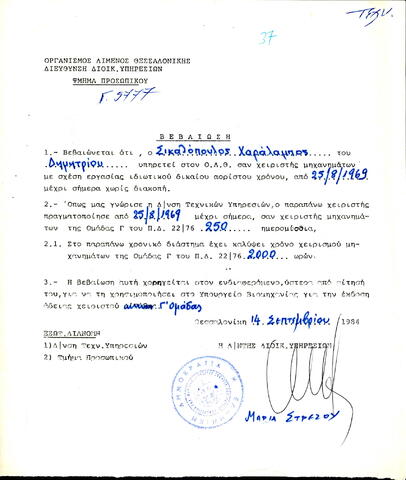 ΤΕΧΝ.
37
ΟΡΓΑΝΙΣΜΟΣ ΛΙΜΕΝΟΣ ΘΕΣΣΑΛΟΝΙΚΗΣ
ΔΙΕΥΘΥΝΣΗ ΔΙΟΙΚ.ΥΠΗΡΕΣΙΩΝ
ΤΜΗΜΑ ΠΡΟΣΩΠΙΚΟΥ
Γ. 9777
ΒΕΒΑΙΩΣΗ
1.- Βεβαιώνεται ότι , ο Σικαλόπουλος Χαράλαμπος..... του
Δημητρίου..... υπηρετεί στον Ο.Λ.Θ. σαν χειριστής μηχανημάτων
με σχέση εργασίας ιδιωτικού δικαίου αορίστου χρόνου, από 25/8/1969
μέχρι σήμερα χωρίς διακοπή.
2.- Όπως μας γνώρισε η Δ/νση Τεχνικών Υπηρεσιών,ο παραπάνω χειριστής
πραγματοποίησε από 25/8/1969 μέχρι σήμερα, σαν χειριστής μηχανημά-
των της Ομάδας Γ του Π.Δ. 22/76 .250..... ημερομίσθια,
2.1. Στο παραπάνω χρονικό διάστημα έχει καλύψει χρόνο χειρισμού μη-
χανημάτων της Ομάδας Γ του Π.Δ. 22/76 2.000... ωρών.
3.- Η Βεβαίωση αυτή χορηγείται στον ενδιαφερόμενο,ύστερα από αίτησή
του,για να τη χρησιμοποιήσει στο Υπουργείο Βιομηχανίας για την έκδοση
άδειας χειριστού Γ' Ομάδας
Θεσσαλονίκη 14 Σεπτεμβρίου 1984
ΕΣΩΤ.ΔΙΑΝΟΜΗ
Η Δ/ΝΤΗΣ ΔΙΟΙΚ.ΥΠΗΡΕΣΙΩΝ
1)Δ/νση Τεχν.Υπηρεσιών
2) Τμήμα Προσωπικού
ΕΛΛΗΝΙΚΗ ΔΗΜΟΚΡΑΤΙΑ
ΜΑΡΙΑ ΣΤΡΕΖΟΥ